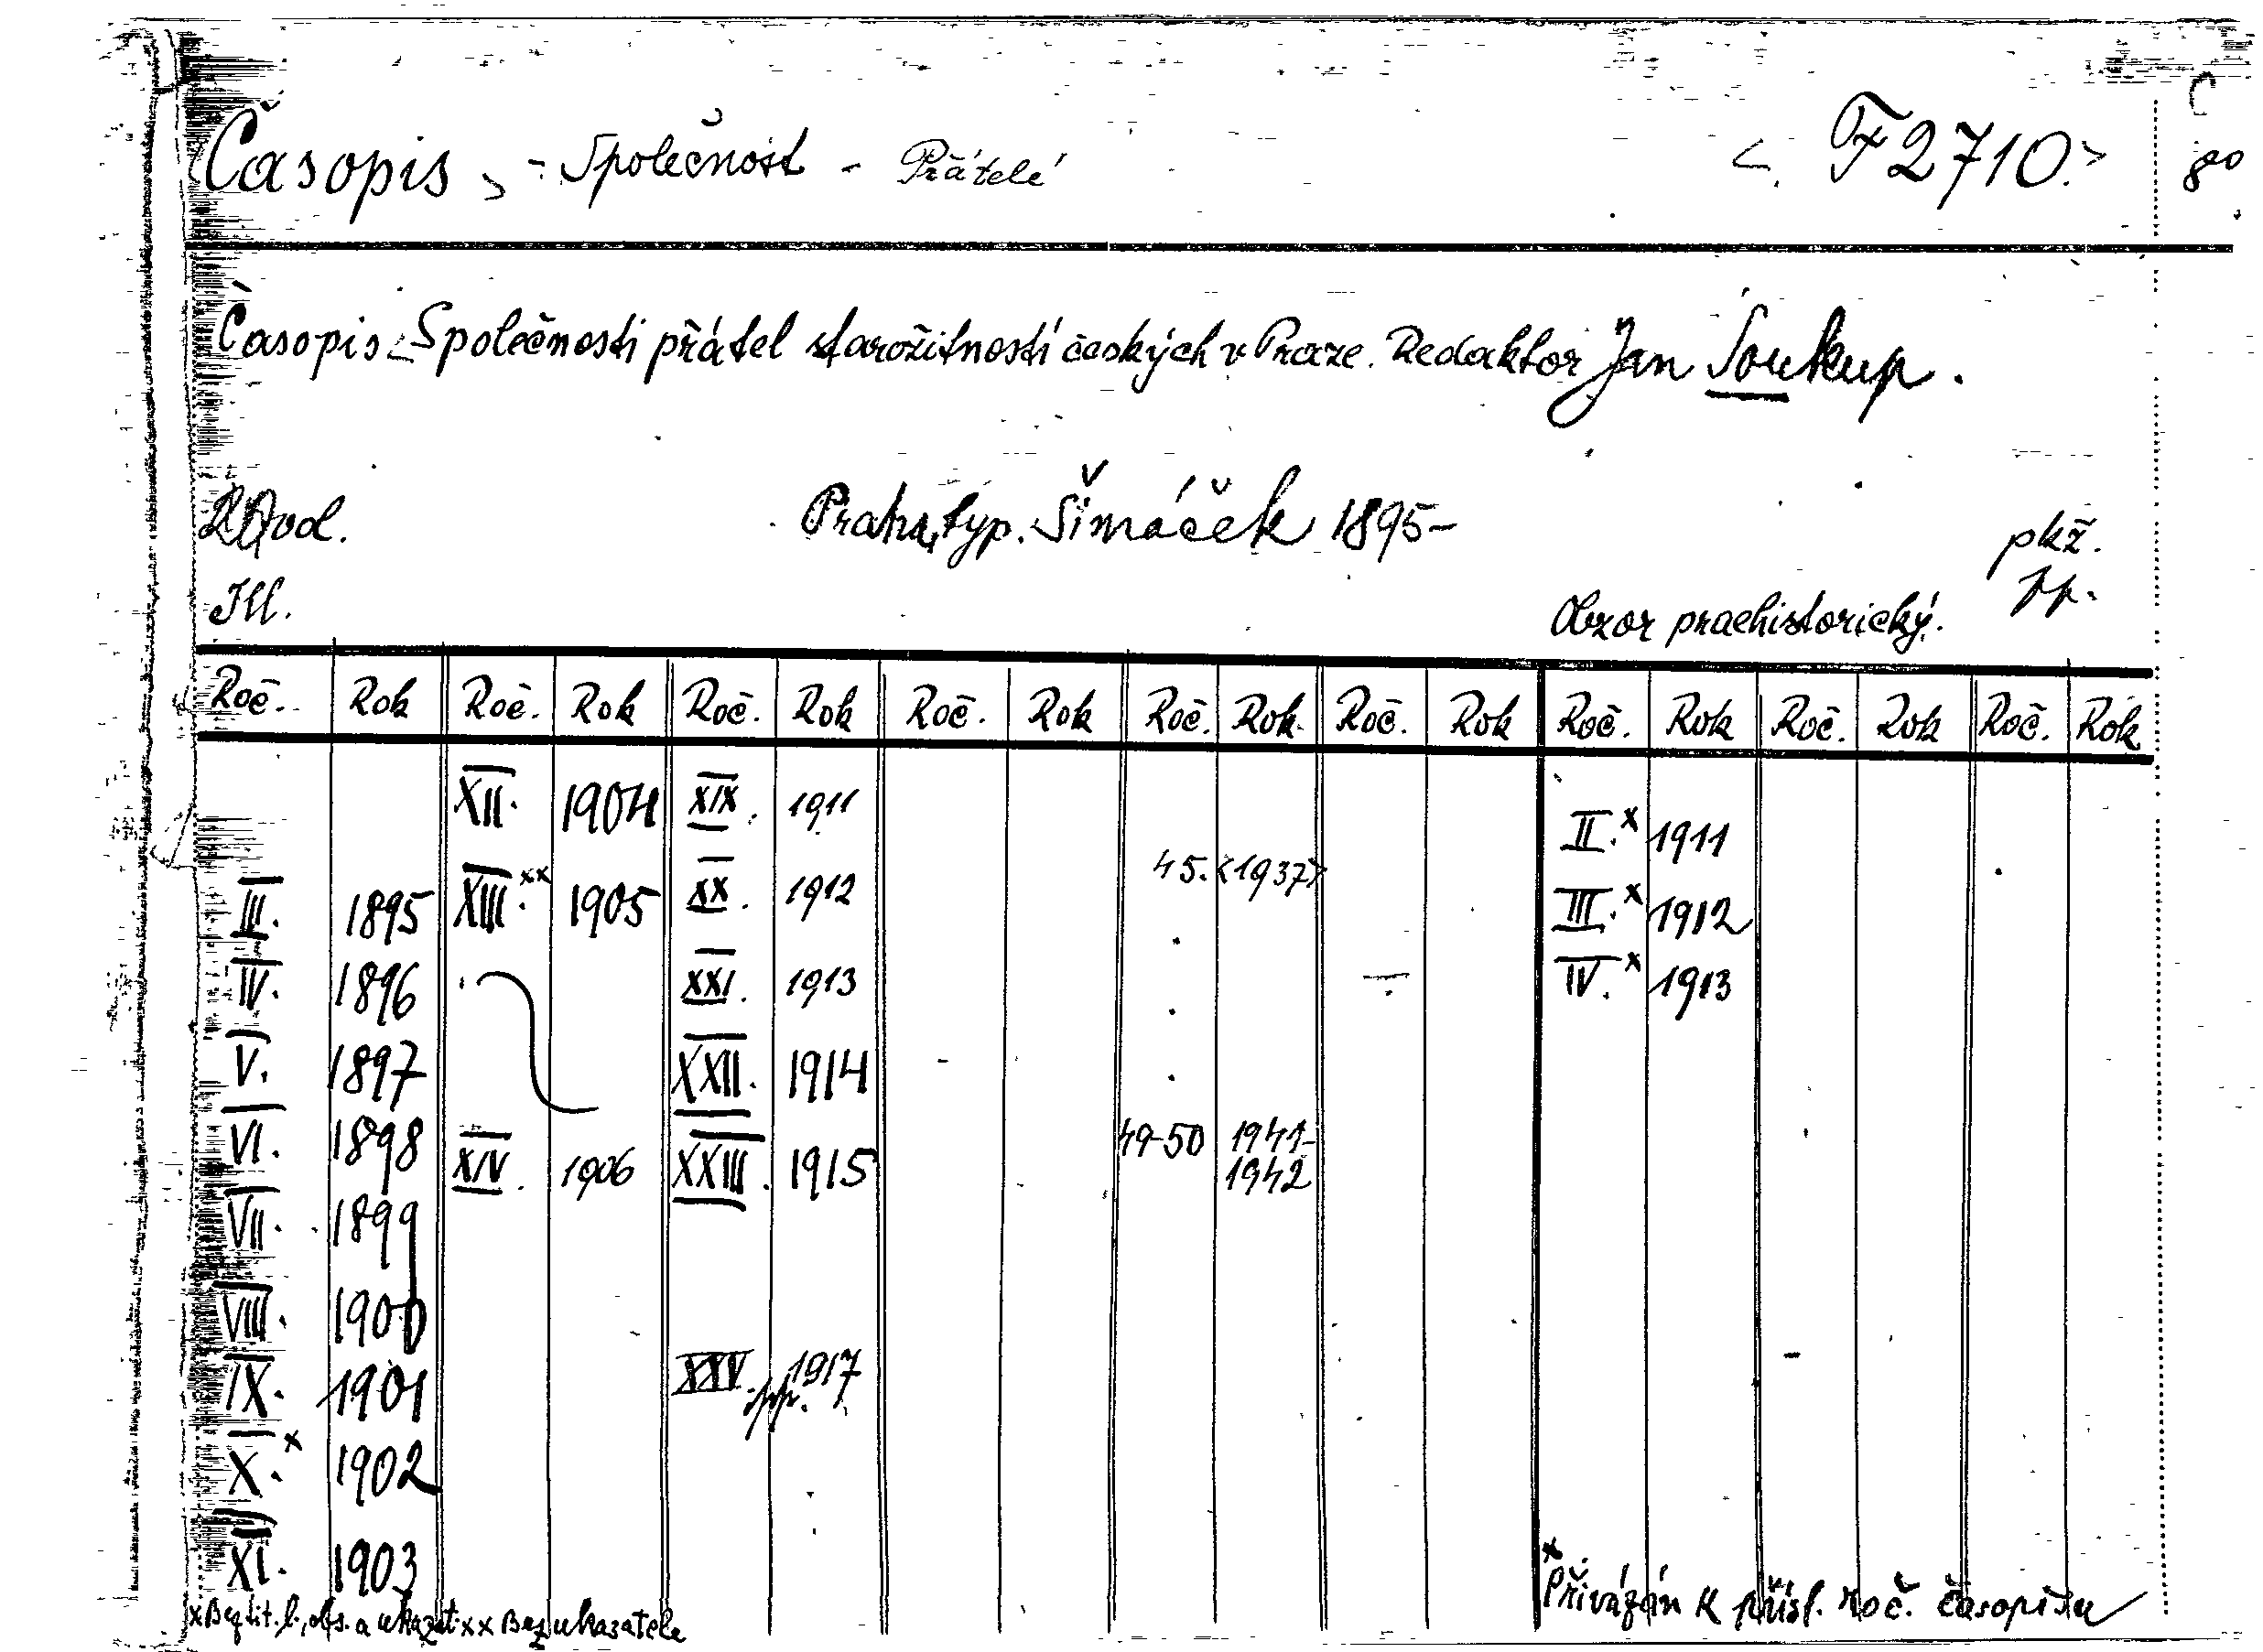 Časopis, - Společnost - Přátelé < F 2710. > 8°
Časopis Společnosti přátel starožitností českých v Praze. Redaktor Jan Soukup.
vol. Praha, typ. Šimáček 1895- pkž.
Ill. Obzor praehistorický. pp.
Roč. Rok Roč. Rok Roč. Rok Roč. Rok Roč. Rok Roč. Rok Roč. Rok Roč. Rok Roč. Rok
XII. 1904 XIX. 1911 II.x 1911
III. 1895 XIII.xx 1905 XX. 1912 45. <1937> III.x 1912
IV. 1896 XXI. 1913 IV.x 1913
V. 1897 XXII. 1914
VI. 1898 XIV. 1906 XXIII. 1915 49-50 1941-
1942
VII. 1899
VIII. 1900
IX. 1901 XXV. pp. 1917
X.x 1902
XI. 1903
x Bez tit. l., obs. a ukazat. xx Bez ukazatele x Přivázán k přísl. roč. časopisu